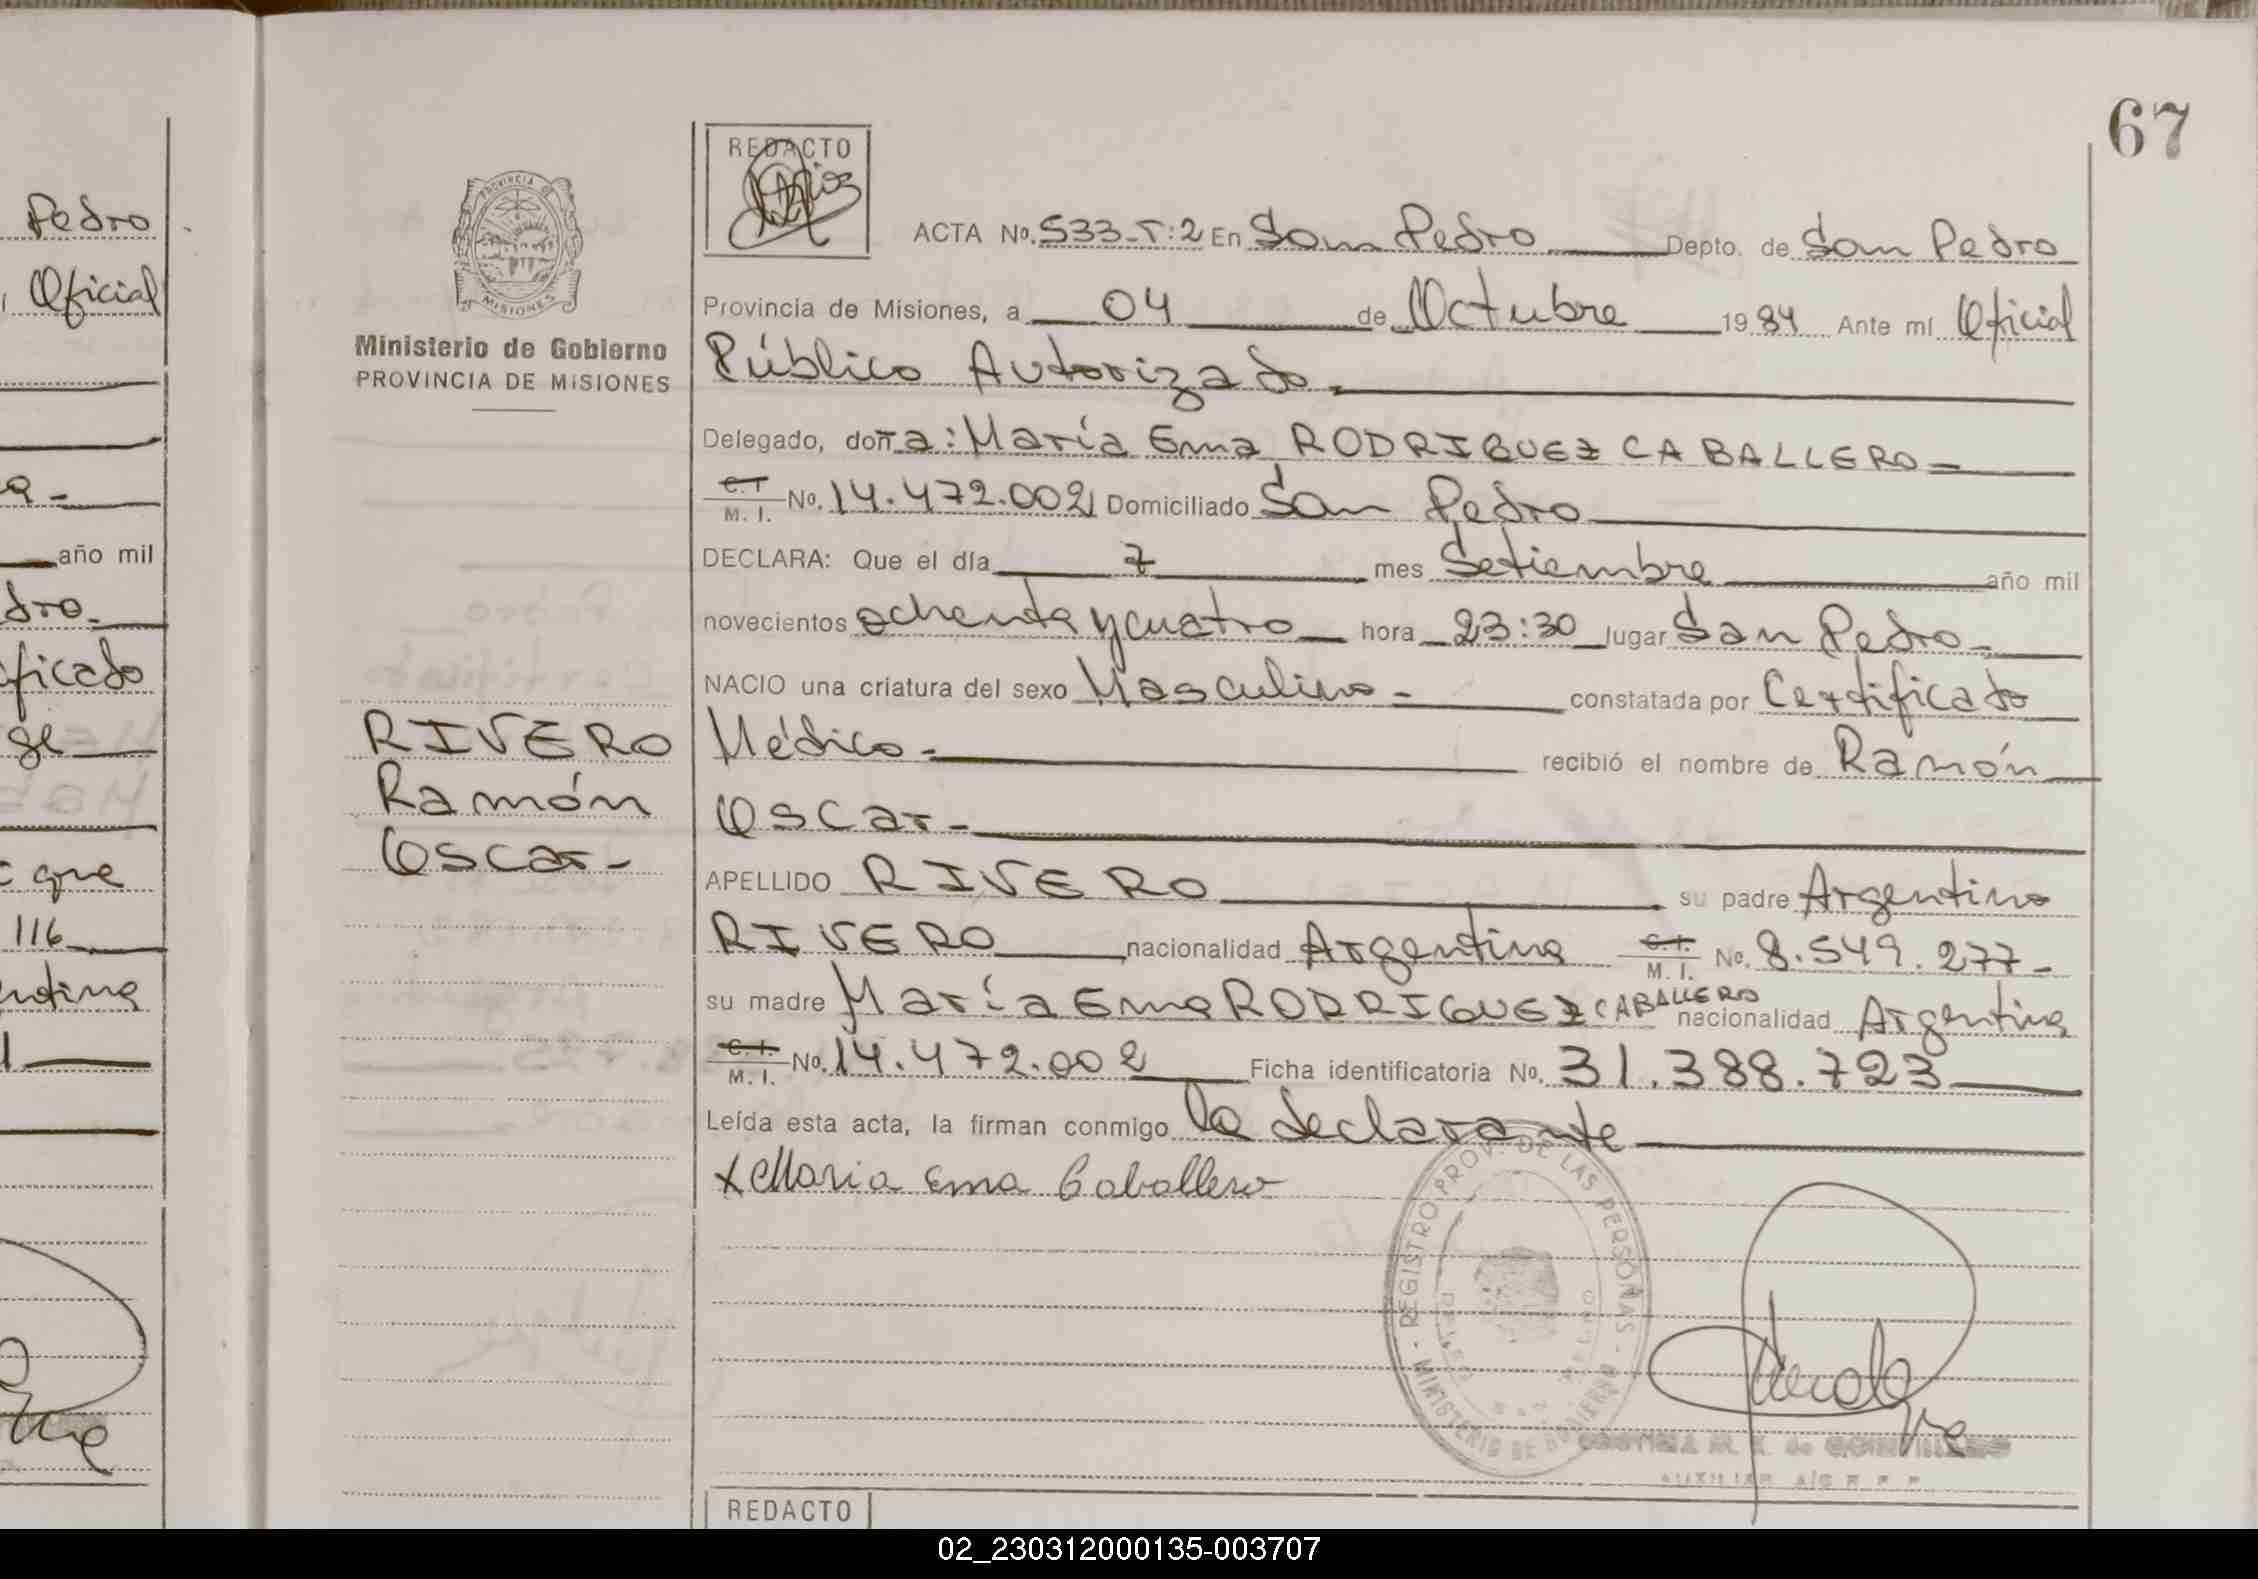 67
Pedro
Oficial
año mil
dro.
ficado
que
116
REDACTO
PROVINCIA DE
MISIONES
Ministerio de Gobierno
PROVINCIA DE MISIONES
ACTA No. 533-T:2 En San Pedro Depto. de San Pedro
Provincia de Misiones, a 04 de Octubre 1984 Ante mí Oficial
Público Autorizado.
Delegado, doña: María Ema RODRIGUEZ CABALLERO
C. I. M. I. No. 14.472.002 Domiciliado San Pedro
DECLARA: Que el día 7 mes Setiembre año mil
novecientos ochenta y cuatro hora 23:30 lugar San Pedro
NACIO una criatura del sexo Masculino constatada por Certificado
Médico recibió el nombre de Ramón
Oscar
APELLIDO RIVERO su padre Argentino
RIVERO nacionalidad Argentina C. I. M. I. No. 8.549.277
su madre María Ema RODRIGUEZ CABALLERO nacionalidad Argentina
C. I. M. I. No. 14.472.002 Ficha identificatoria No. 31.388.723
Leída esta acta, la firman conmigo la declarante
RIVERO
Ramón
Oscar
x Maria Ema Caballero
REGISTRO PROV. DE LAS PERSONAS - MINISTERIO DE GOBIERNO
REDACTO
02_230312000135-003707